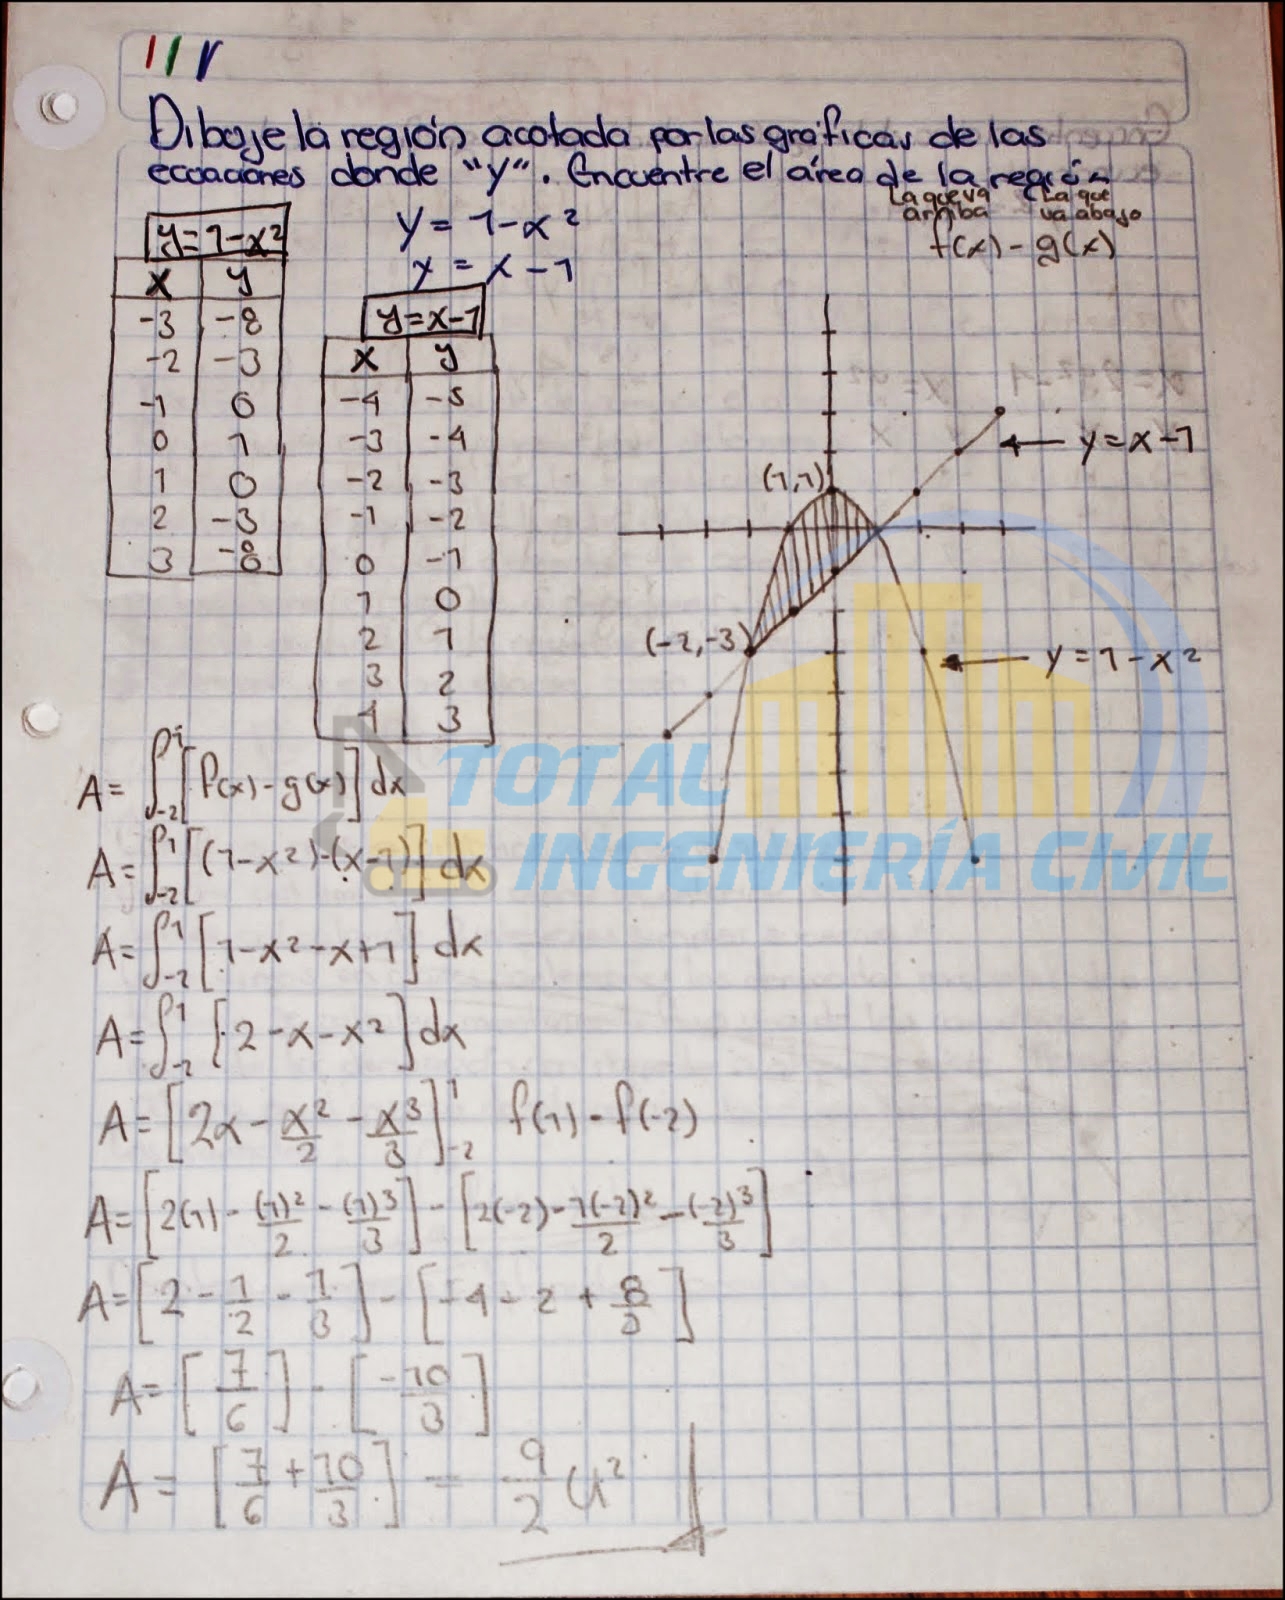 Dibuje la región acotada por las gráficas de las
ecuaciones donde "y". Encuentre el área de la región
La que va arriba
La que va abajo
f(x) - g(x)
y = 1-x²
y = x-1
y=1-x²
x y
-3 -8
-2 -3
-1 0
0 1
1 0
2 -3
3 -8
y=x-1
x y
-4 -5
-3 -4
-2 -3
-1 -2
0 -1
1 0
2 1
3 2
4 3
y=x-1
(1,1)
(-2,-3)
y=1-x²
TOTAL
INGENIERÍA CIVIL
A= ∫₋₂¹ [f(x)-g(x)] dx
A= ∫₋₂¹ [(1-x²)-(x-1)] dx
A= ∫₋₂¹ [1-x²-x+1] dx
A= ∫₋₂¹ [2-x-x²] dx
A= [2x - x²/2 - x³/3]₋₂¹ f(1)-f(-2)
A= [2(1) - (1)²/2 - (1)³/3] - [2(-2) - 1(-2)²/2 - (-2)³/3]
A= [2 - 1/2 - 1/3] - [-4 - 2 + 8/3]
A= [7/6] - [-10/3]
A = [7/6 + 10/3] = 9/2 u²